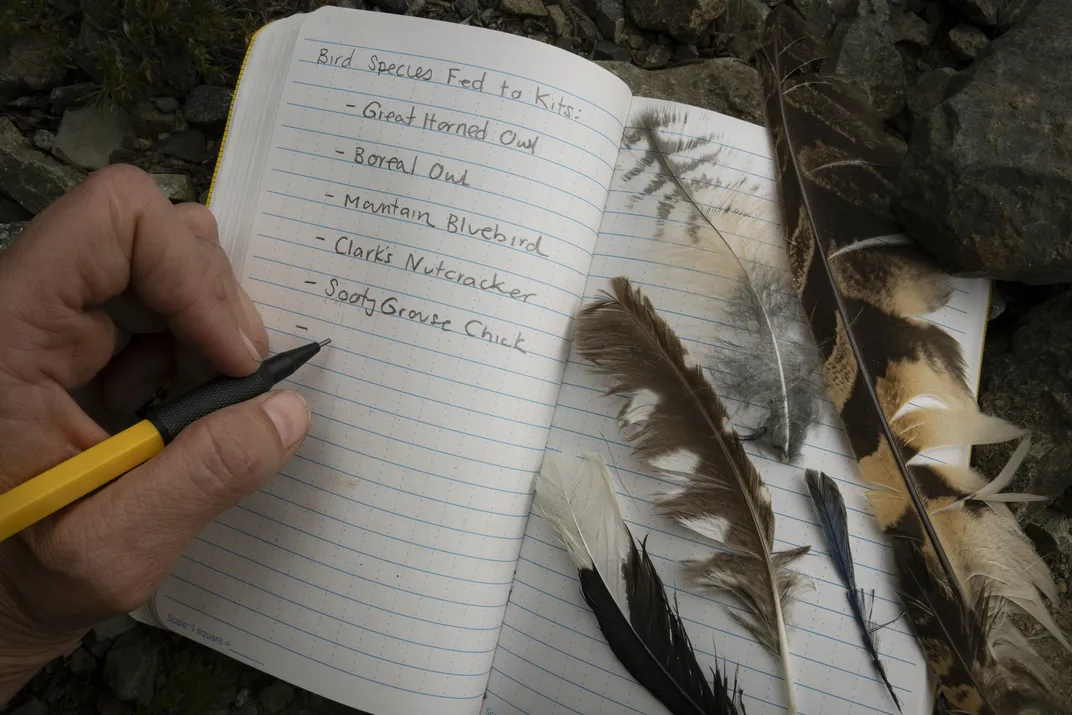 Bird Species Fed to Kits:
- Great Horned Owl
- Boreal Owl
- Mountain Bluebird
- Clark's Nutcracker
- Sooty Grouse Chick
-
Scale: 1 square =